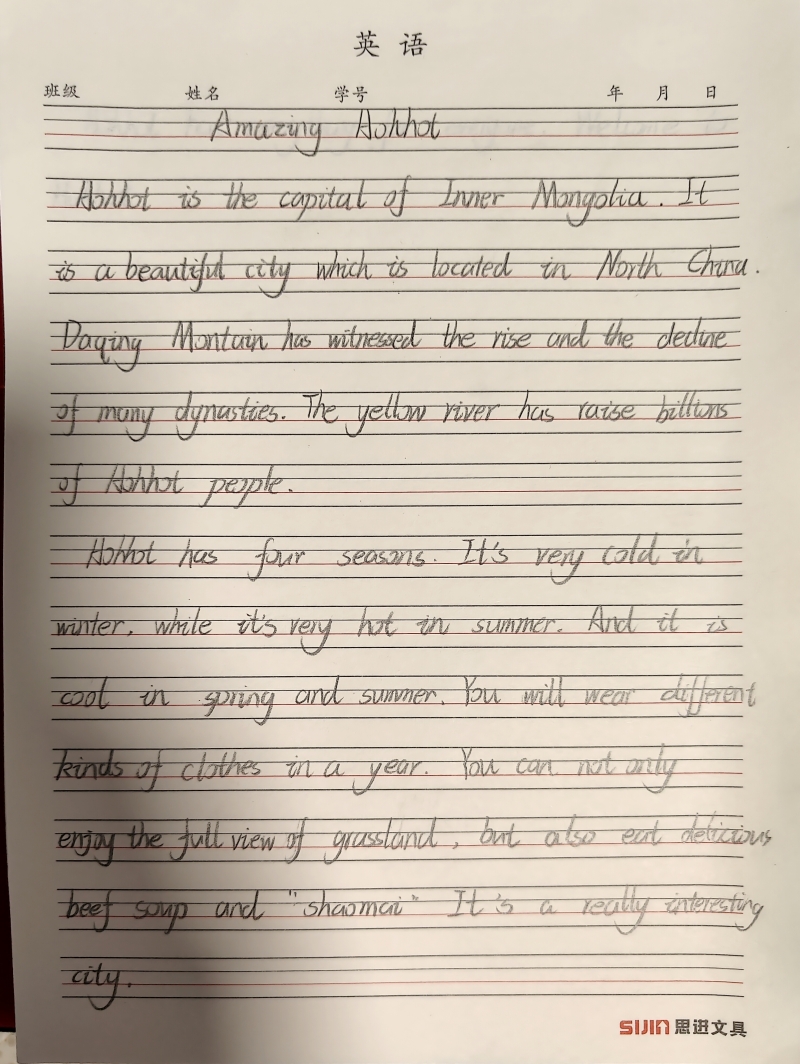 英语
班级 姓名 学号 年 月 日
Amazing Hohhot
Hohhot is the capital of Inner Mongolia. It
is a beautiful city which is located in North China.
Daqing Montain has witnessed the rise and the decline
of many dynasties. The yellow river has raise billions
of Hohhot people.
Hohhot has four seasons. It's very cold in
winter, while it's very hot in summer. And it is
cool in spring and summer. You will wear different
kinds of clothes in a year. You can not only
enjoy the full view of grassland, but also eat delicious
beef soup and "shaomai" It's a really interesting
city.
SIJIN 思进文具